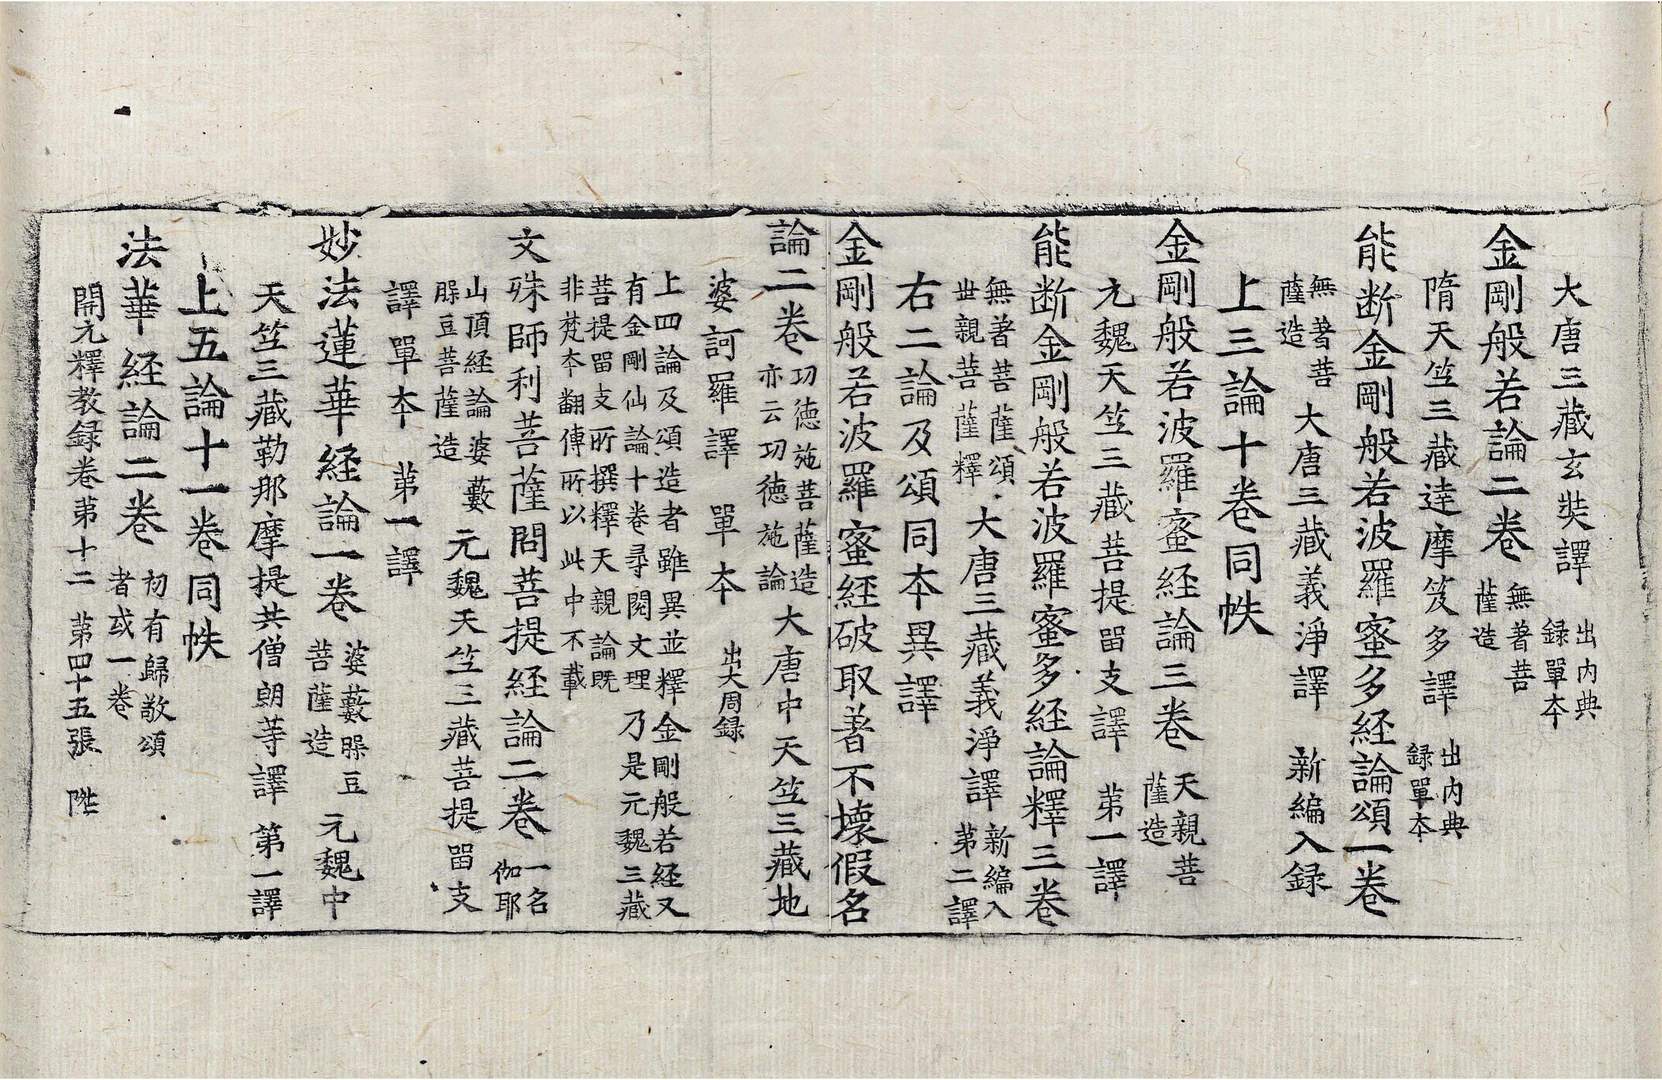 大唐三藏玄奘譯 出内典録單本
金剛般若論二巻 無著菩薩造
隋天竺三藏達摩笈多譯 出内典録單本
能断金剛般若波羅蜜多経論頌一巻
無著菩薩造 大唐三藏義淨譯 新編入録
上三論十巻同帙
金剛般若波羅蜜経論三巻 天親菩薩造
元魏天竺三藏菩提留支譯 第一譯
能断金剛般若波羅蜜多経論釋三巻
無著菩薩頌世親菩薩釋 大唐三藏義淨譯 新編入録第二譯
右二論及頌同本異譯
金剛般若波羅蜜経破取著不壊假名
論二巻 功德施菩薩造亦云功德施論 大唐中天竺三藏地
婆訶羅譯 單本 出大周録
上四論及頌造者雖異並釋金剛般若経又
有金剛仙論十巻尋閲文理乃是元魏三藏
菩提留支所撰釋天親論既
非梵本翻傳所以此中不載
文殊師利菩薩問菩提経論二巻 一名伽耶
山頂経論婆藪槃豆菩薩造 元魏天竺三藏菩提留支
譯單本 第一譯
妙法蓮華経論一巻 婆藪槃豆菩薩造 元魏中
天竺三藏勒那摩提共僧朗等譯 第一譯
上五論十一巻同帙
法華経論二巻 初有歸敬頌者或一巻
開元釋教録巻第十二 第四十五張 陛